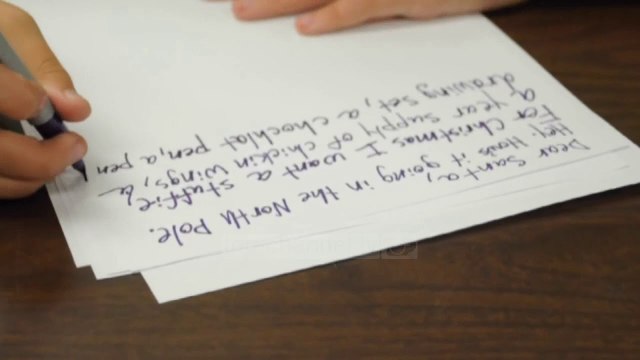 Dear Santa,
Hey! How's it going in the North Pole.
For Christmas I want a stuffie
a year supply of chickin wings, &
drawing set, a chochlat pen, a pen